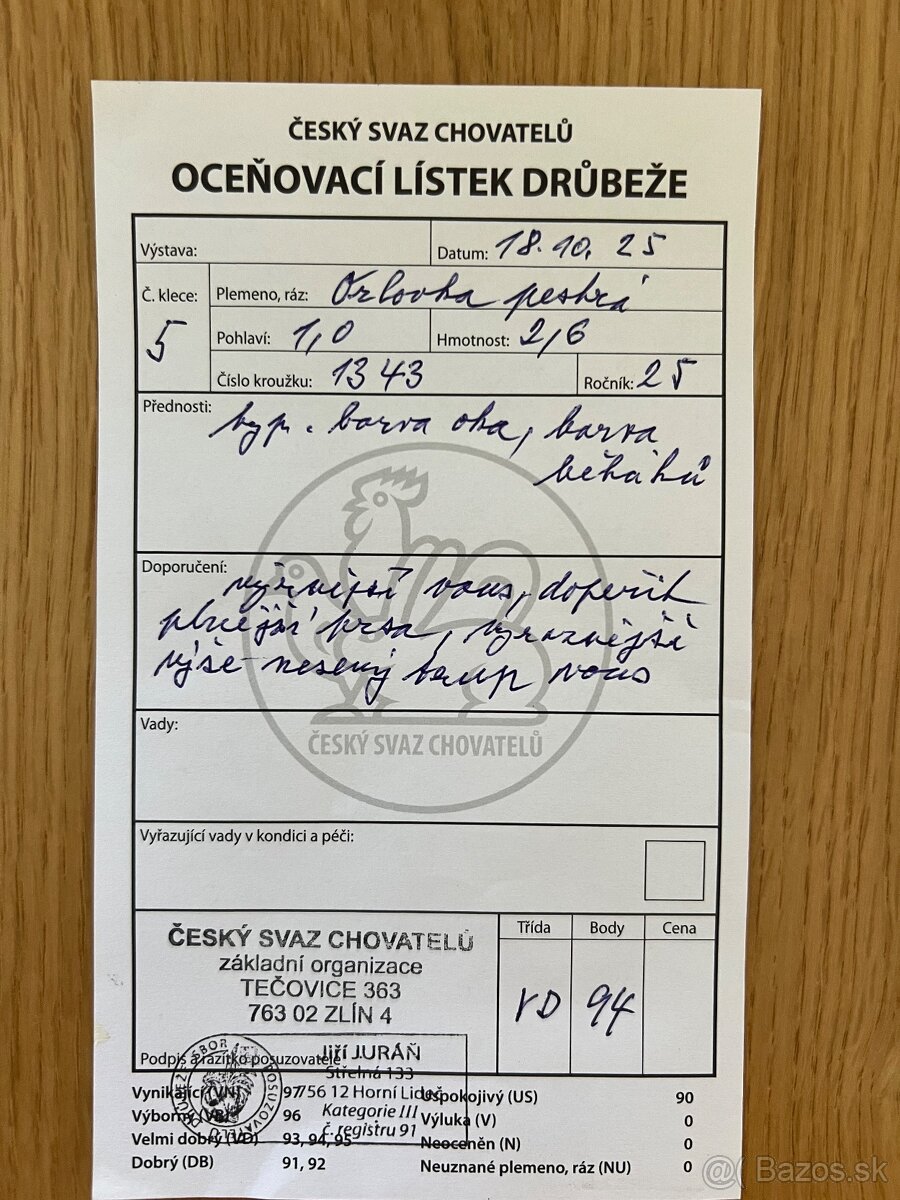 ČESKÝ SVAZ CHOVATELŮ
OCEŇOVACÍ LÍSTEK DRŮBEŽE
Výstava:
Datum: 18.10. 25
Č. klece: 5
Plemeno, ráz: Orlovka pestrá
Pohlaví: 1,0
Hmotnost: 2,6
Číslo kroužku: 1343
Ročník: 25
Přednosti: typ. barva oka, barva
běháků
Doporučení: vous, dopeřit
plnější prsa, výraznější
výše nesený trup vous
ČESKÝ SVAZ CHOVATELŮ
Vady:
Vyřazující vady v kondici a péči:
ČESKÝ SVAZ CHOVATELŮ
základní organizace
TEČOVICE 363
763 02 ZLÍN 4
Třída Body Cena
VD 94
Podpis a razítko posuzovatele
Jiří JURÁŇ
Střelná 133
756 12 Horní Lideč
Kategorie III
č. registru 91
Vynikající (VN) 97
Výborný (VB) 96
Velmi dobrý (VD) 93, 94, 95
Dobrý (DB) 91, 92
Uspokojivý (US) 90
Výluka (V) 0
Neoceněn (N) 0
Neuznané plemeno, ráz (NU) 0
@( Bazos.sk